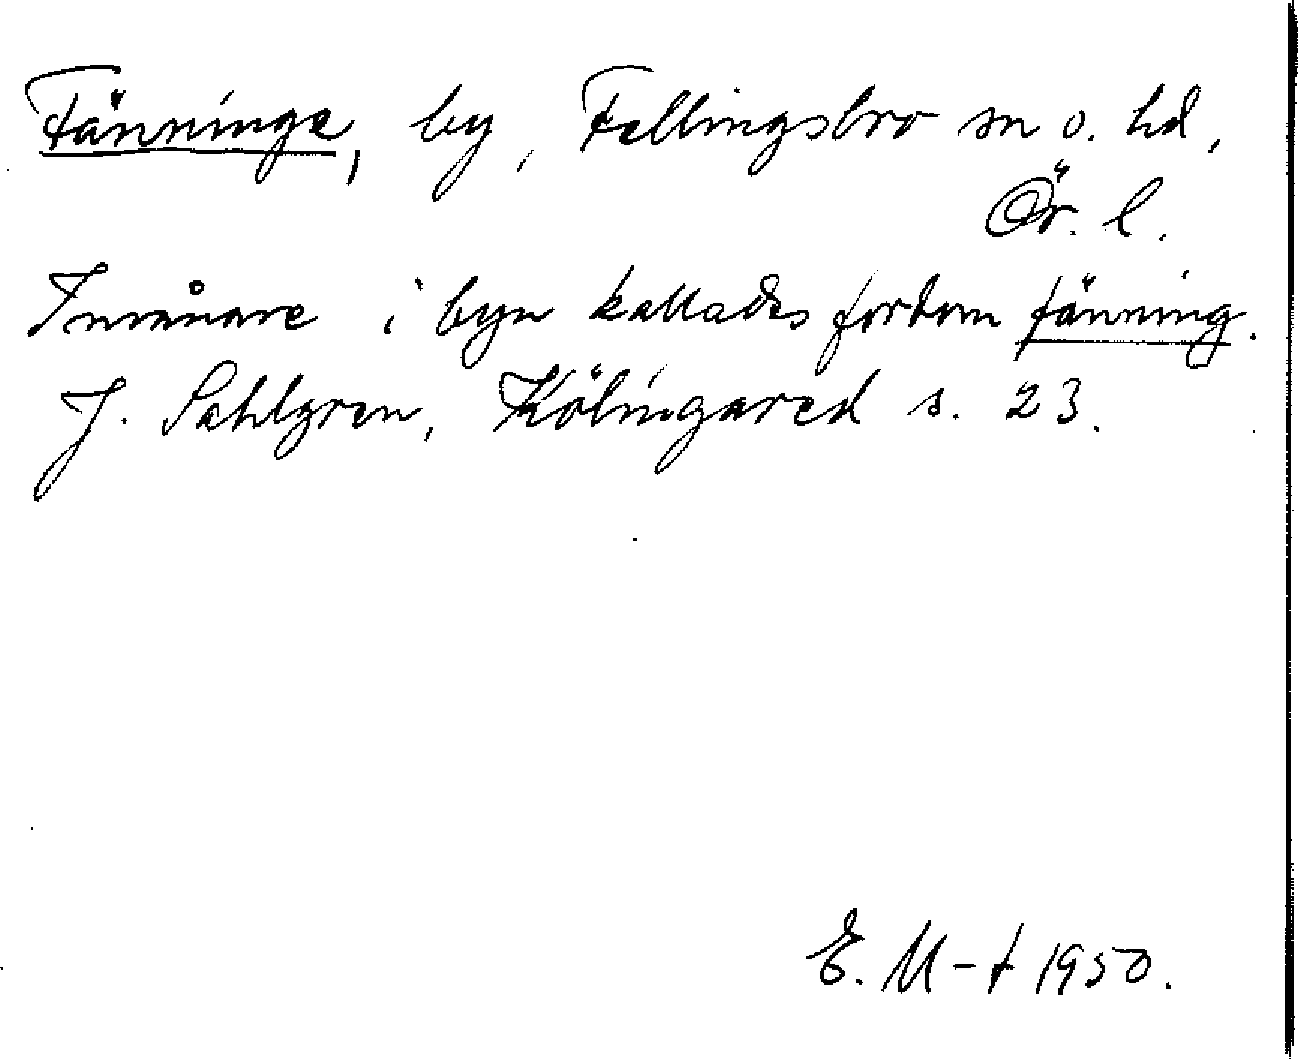 Fänninge, by, Fellingsbro sn o. hd,
Ör. l.
Invånare i byn kallades fordom fänning.
J. Sahlgren, Kölingared s. 23.
E. M-t 1950.